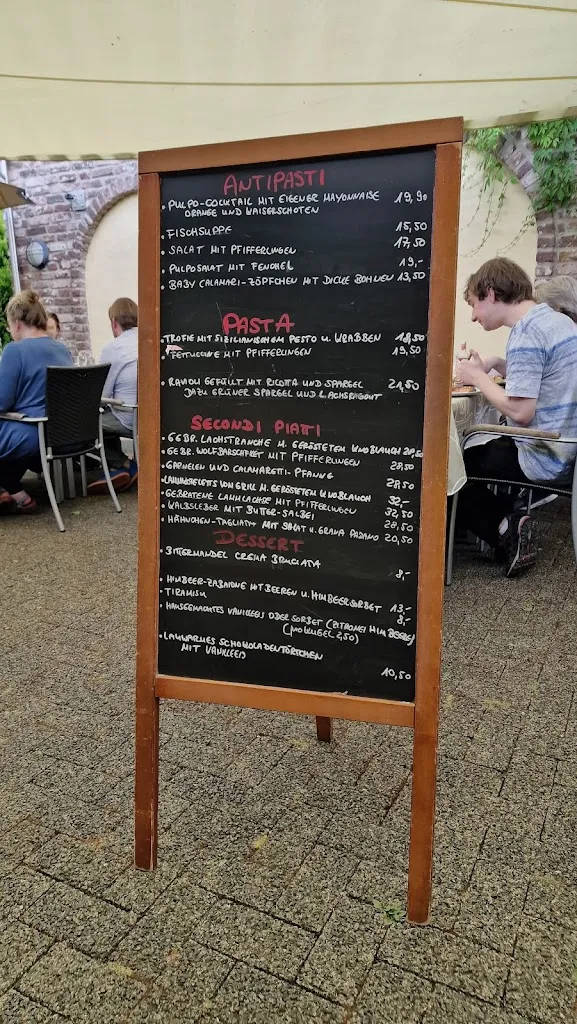 ANTIPASTI
• PULPO-COCKTAIL MIT EIGENER MAYONNAISE 19,90
ORANGE UND KAISERSCHOTEN
• FISCHSUPPE 15,50
• SALAT MIT PFIFFERLINGEN 17,50
• PULPOSALAT MIT FENCHEL 19,-
• BABY CALAMARI-ZÖPFCHEN MIT DICKE BOHNEN 13,50
PASTA
• TROFIE MIT SIZILIANISCHEM PESTO U. KRABBEN 18,50
• FETTUCCINE MIT PFIFFERLINGEN 19,50
• RAVIOLI GEFÜLLT MIT RICOTTA UND SPARGEL 21,50
DAZU GRÜNER SPARGEL UND LACHSRAGOUT
SECONDI PIATTI
• GEBR. LACHSTRANCHE M. GERÖSTETEM KNOBLAUCH 28,50
• GEBR. WOLFBARSCHFILET MIT PFIFFERLINGEN 28,50
• GARNELEN UND CALAMARETTI-PFANNE 28,50
• LAMMKOTELETTS VON GRILL M. GERÖSTETEM KNOBLAUCH 32,-
• GEBRATENE LAMMLACHSE MIT PFIFFERLINGEN 32,50
• KALBSLEBER MIT BUTTER-SALBEI 28,50
• HÄHNCHEN-TAGLIATA MIT SALAT U. GRANA PADANO 20,50
DESSERT
• BITTERMANDEL CREMA BRUCIATA 8,-
• HIMBEER-ZABAIONE MIT BEEREN U. HIMBEERSORBET 13,-
• TIRAMISU 8,-
• HAUSGEMACHTES VANILLEEIS ODER SORBET (ZITRONE/HIMBEERE)
(PRO KUGEL 2,50)
• LAUWARMES SCHOKOLADENTÖRTCHEN
MIT VANILLEEIS 10,50